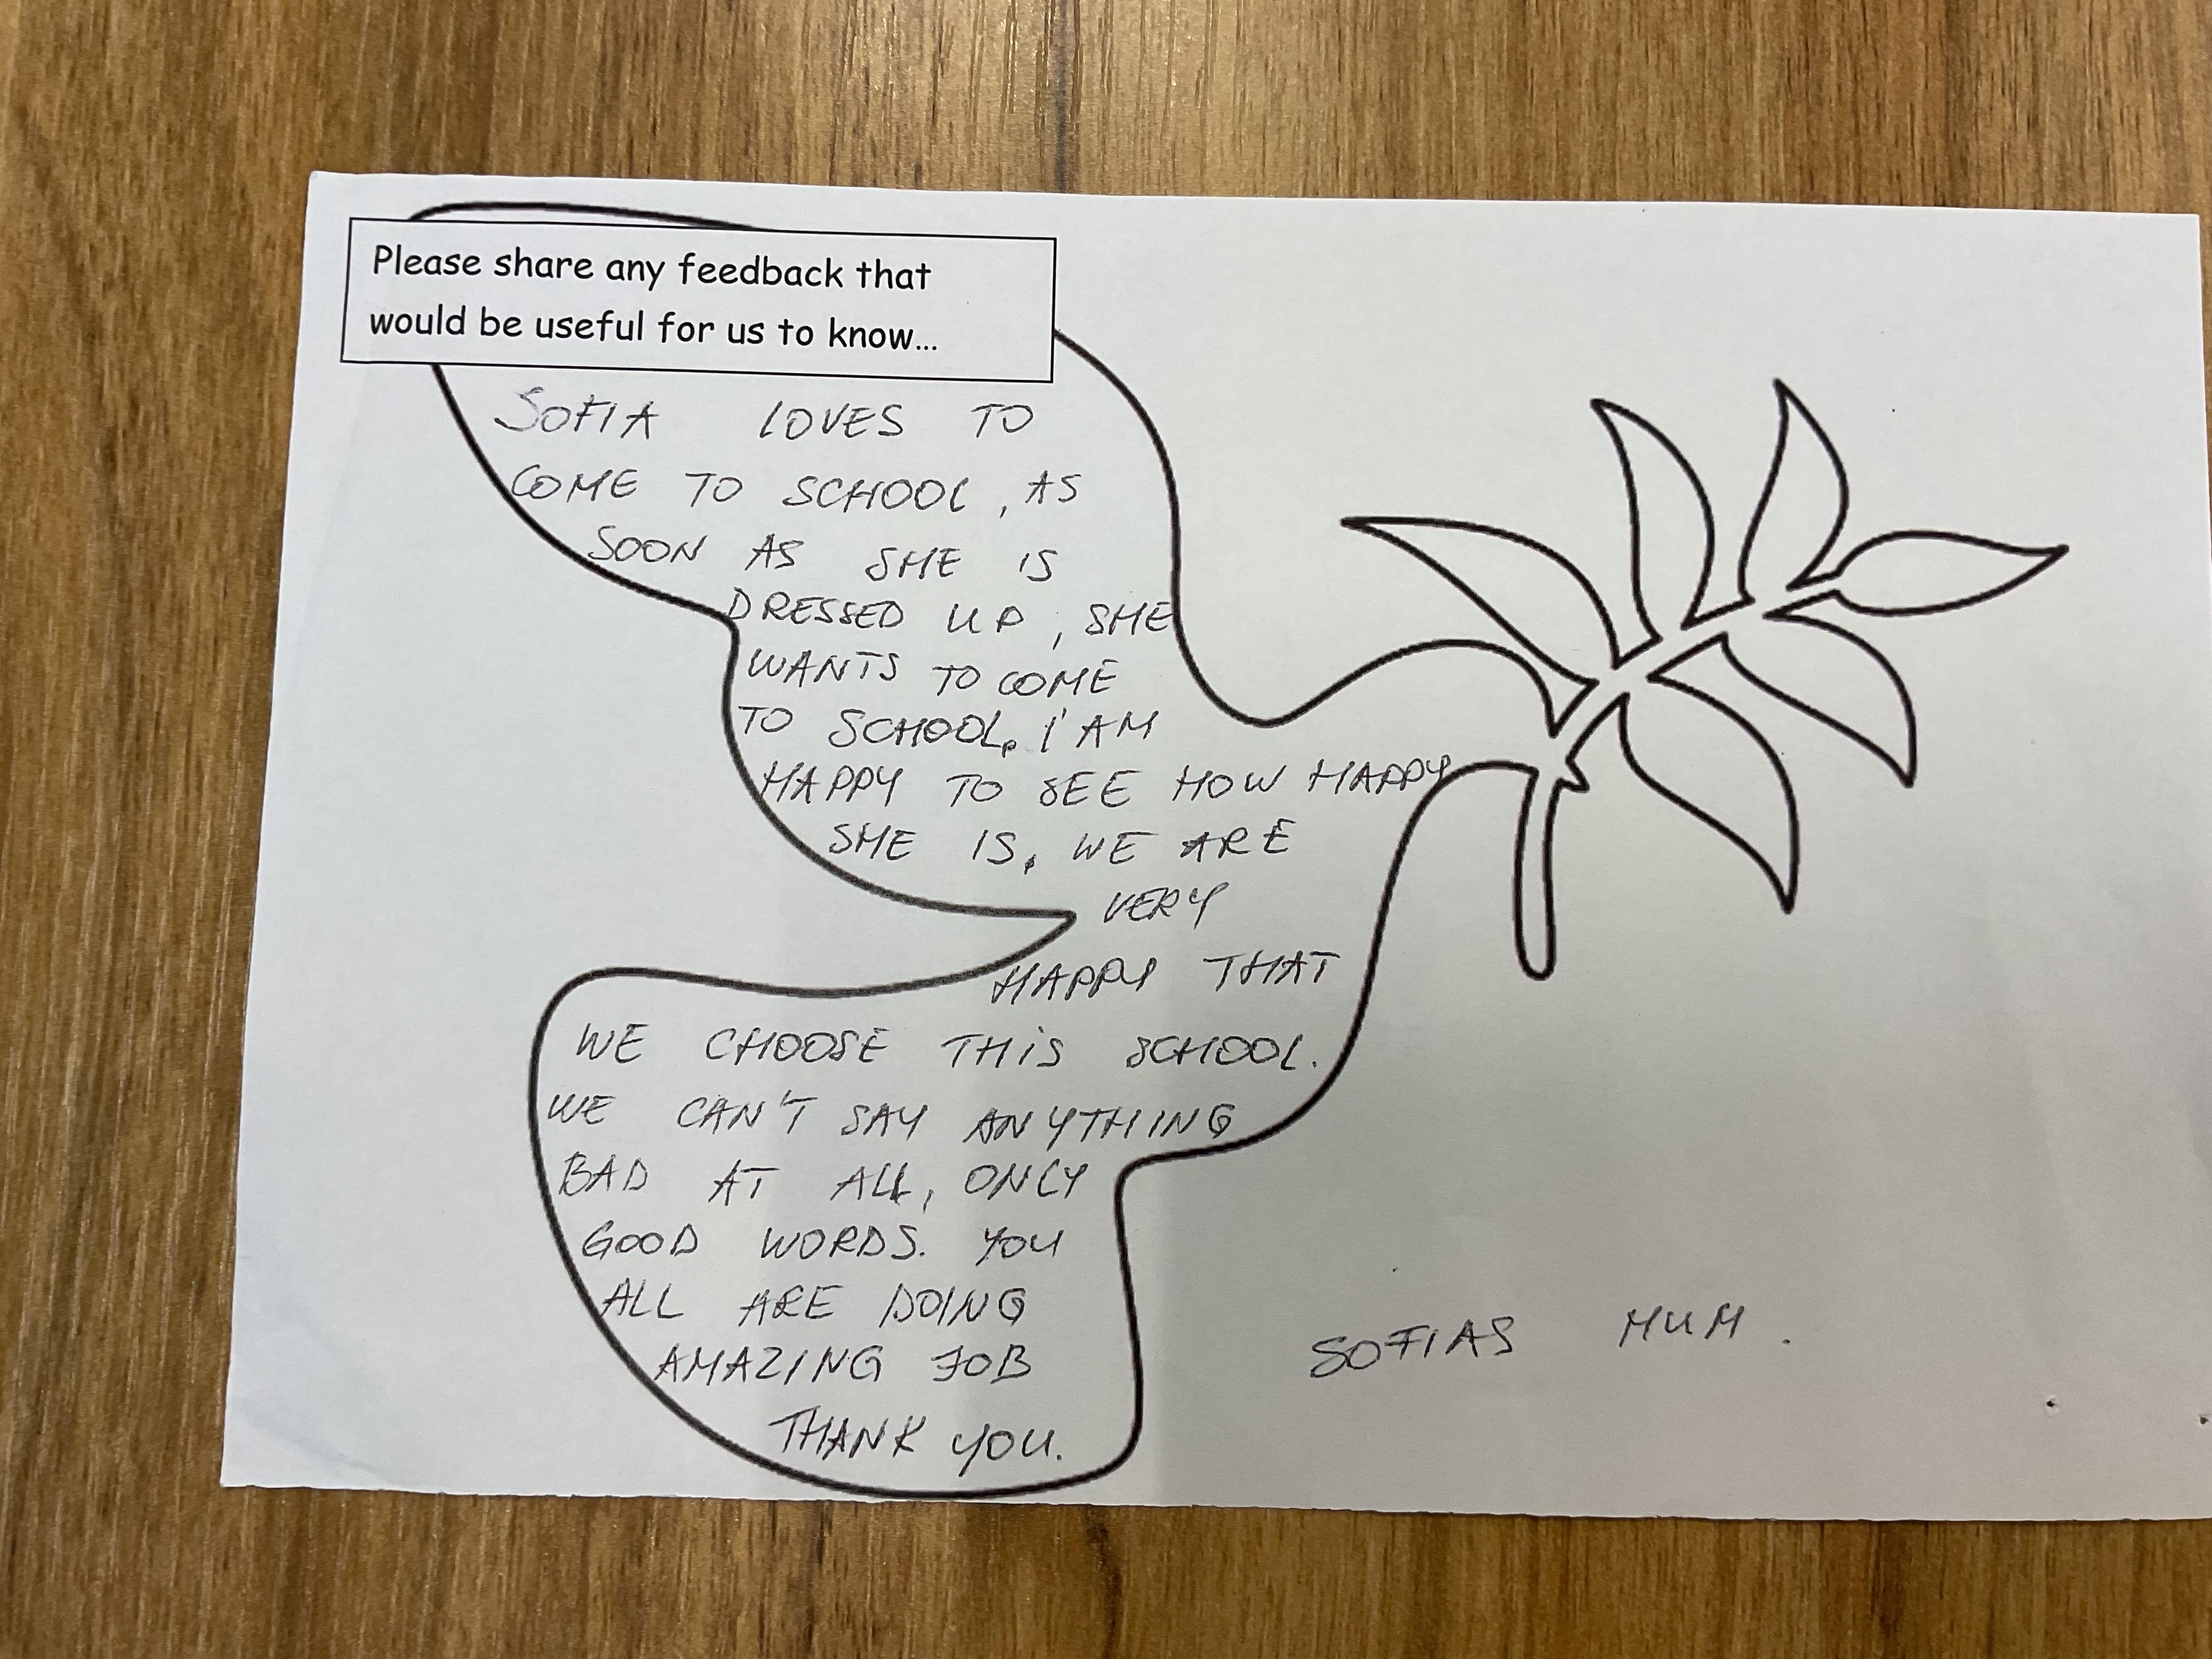 Please share any feedback that
would be useful for us to know...
SOFIA LOVES TO
COME TO SCHOOL, AS
SOON AS SHE IS
DRESSED UP, SHE
WANTS TO COME
TO SCHOOL. I'AM
HAPPY TO SEE HOW HAPPY
SHE IS. WE ARE
VERY
HAPPY THAT
WE CHOOSE THIS SCHOOL.
WE CAN'T SAY ANYTHING
BAD AT ALL, ONLY
GOOD WORDS. YOU
ALL ARE DOING
AMAZING JOB
THANK YOU.
SOFIAS MUM.